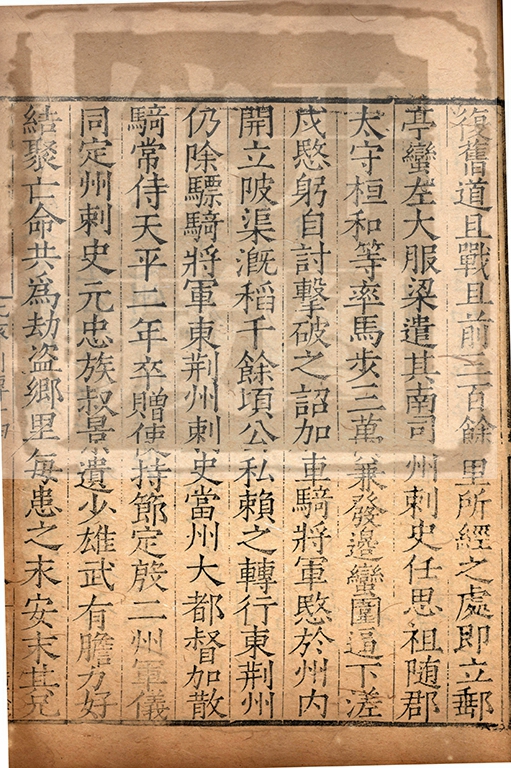 復舊道且戰且前三百餘里所經之處即立郵
亭蠻左大服梁遣其南司州刺史任思祖隨郡
太守桓和等率馬步三萬兼發邊蠻圍逼下溠
戍愍躬自討擊破之詔加車騎將軍愍於州內
開立陂渠溉稻千餘頃公私賴之轉行東荊州
仍除驃騎將軍東荊州刺史當州大都督加散
騎常侍天平二年卒贈使持節定殷二州軍儀
同定州刺史元忠族叔景遺少雄武有膽力好
結聚亡命共為劫盜鄉里每患之永安末其兄